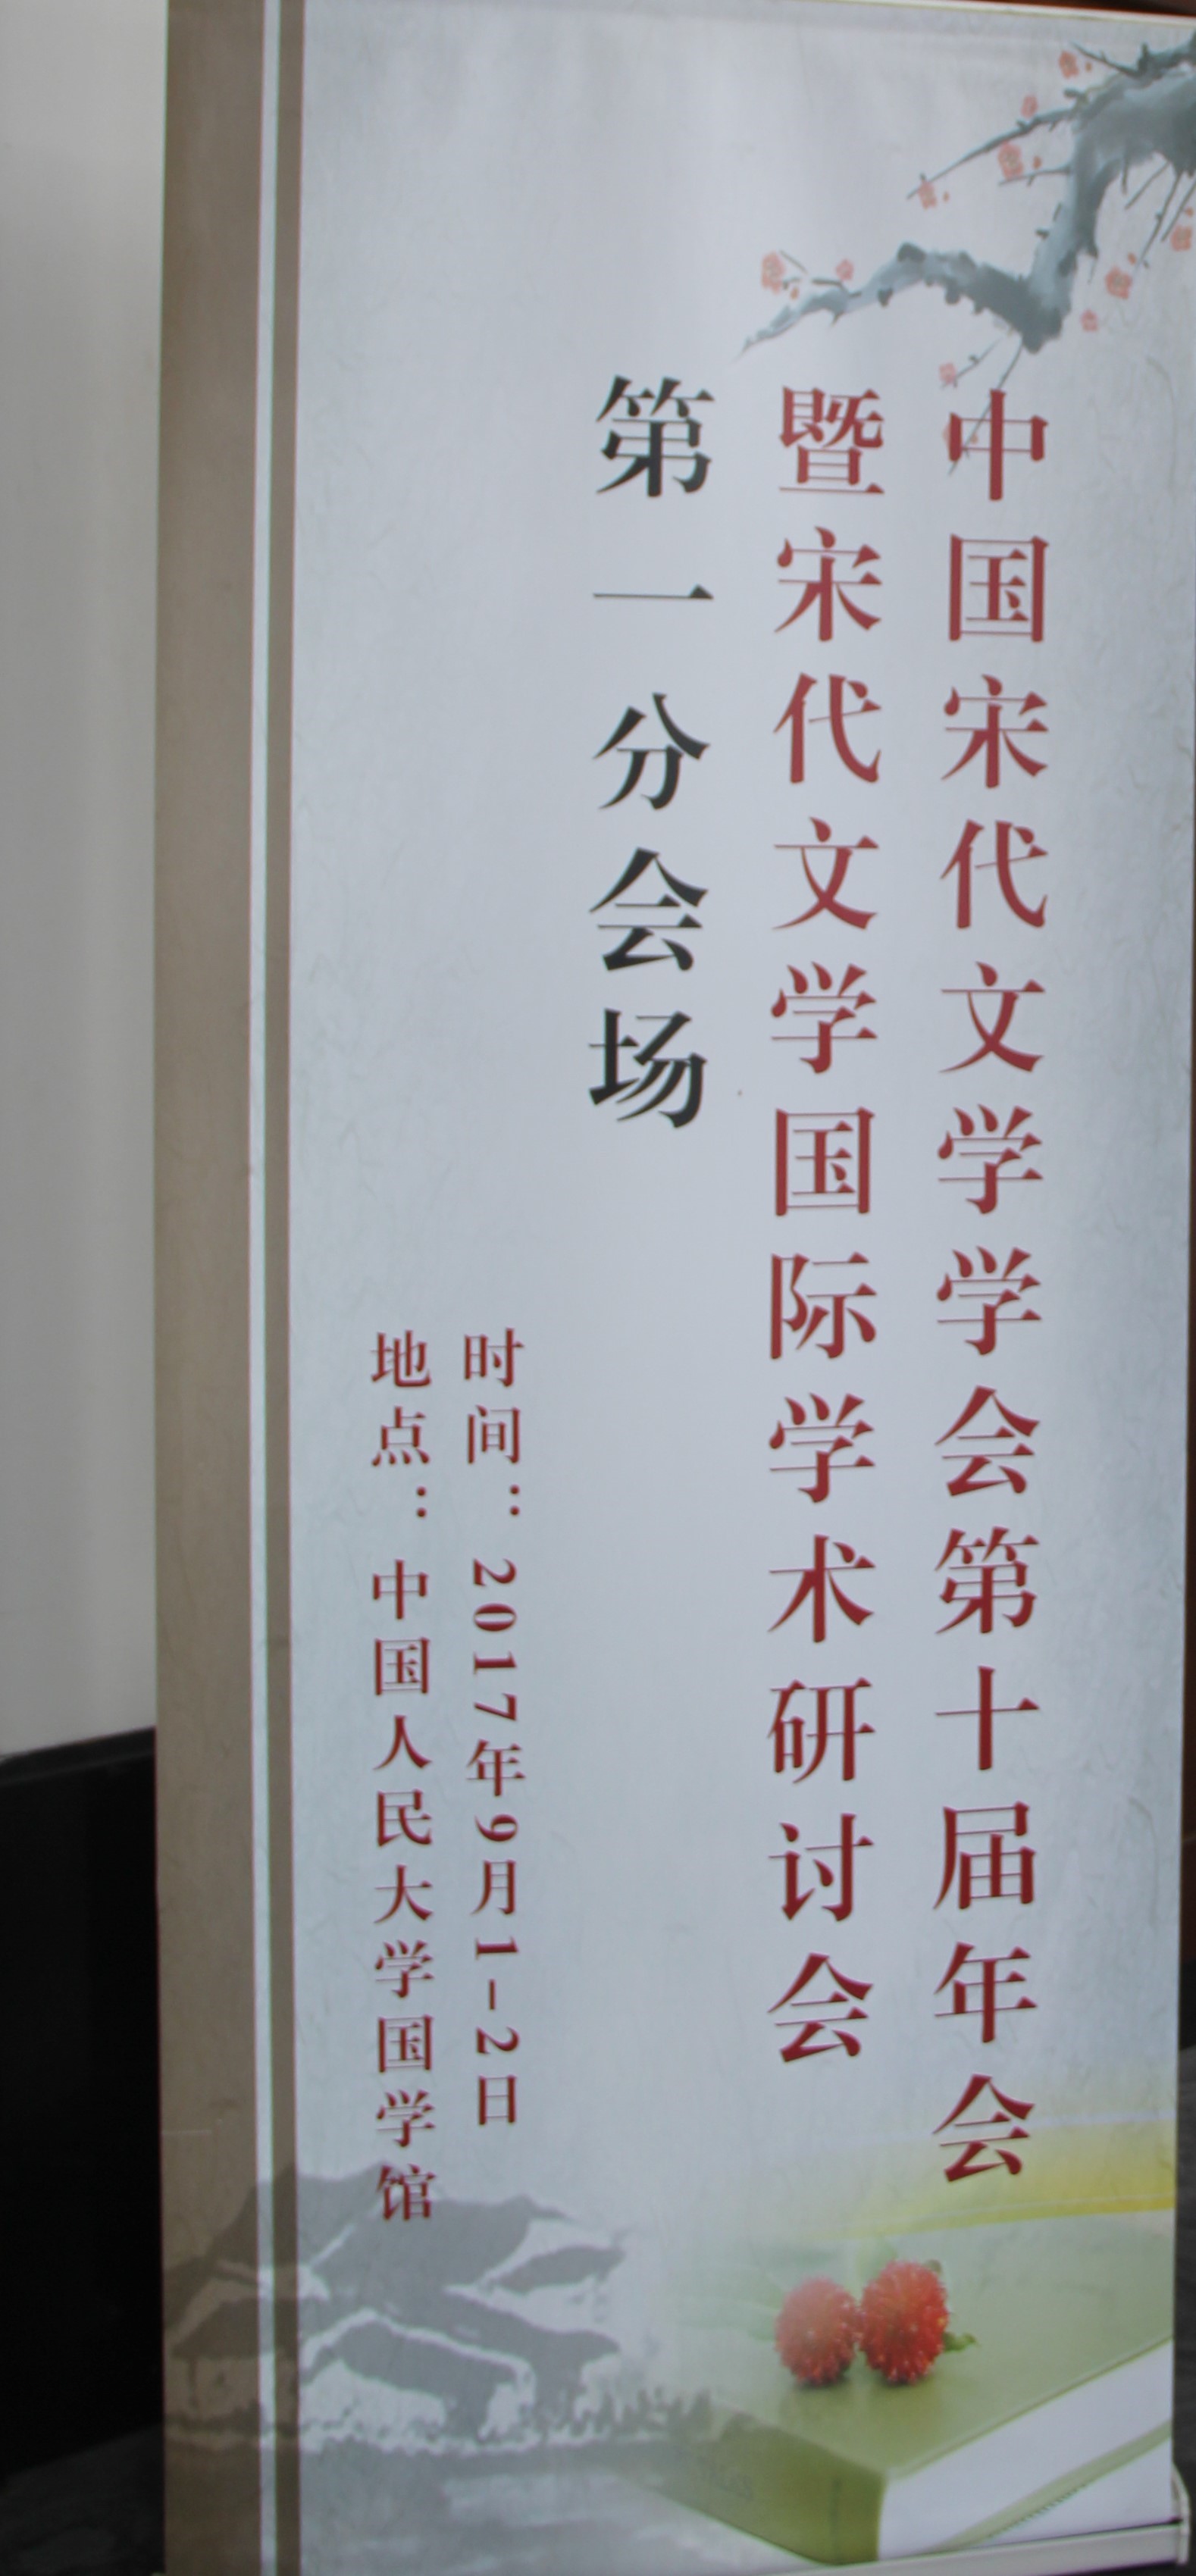 中国宋代文学学会第十届年会
暨宋代文学国际学术研讨会
第一分会场
时间：2017年9月1-2日
地点：中国人民大学国学馆